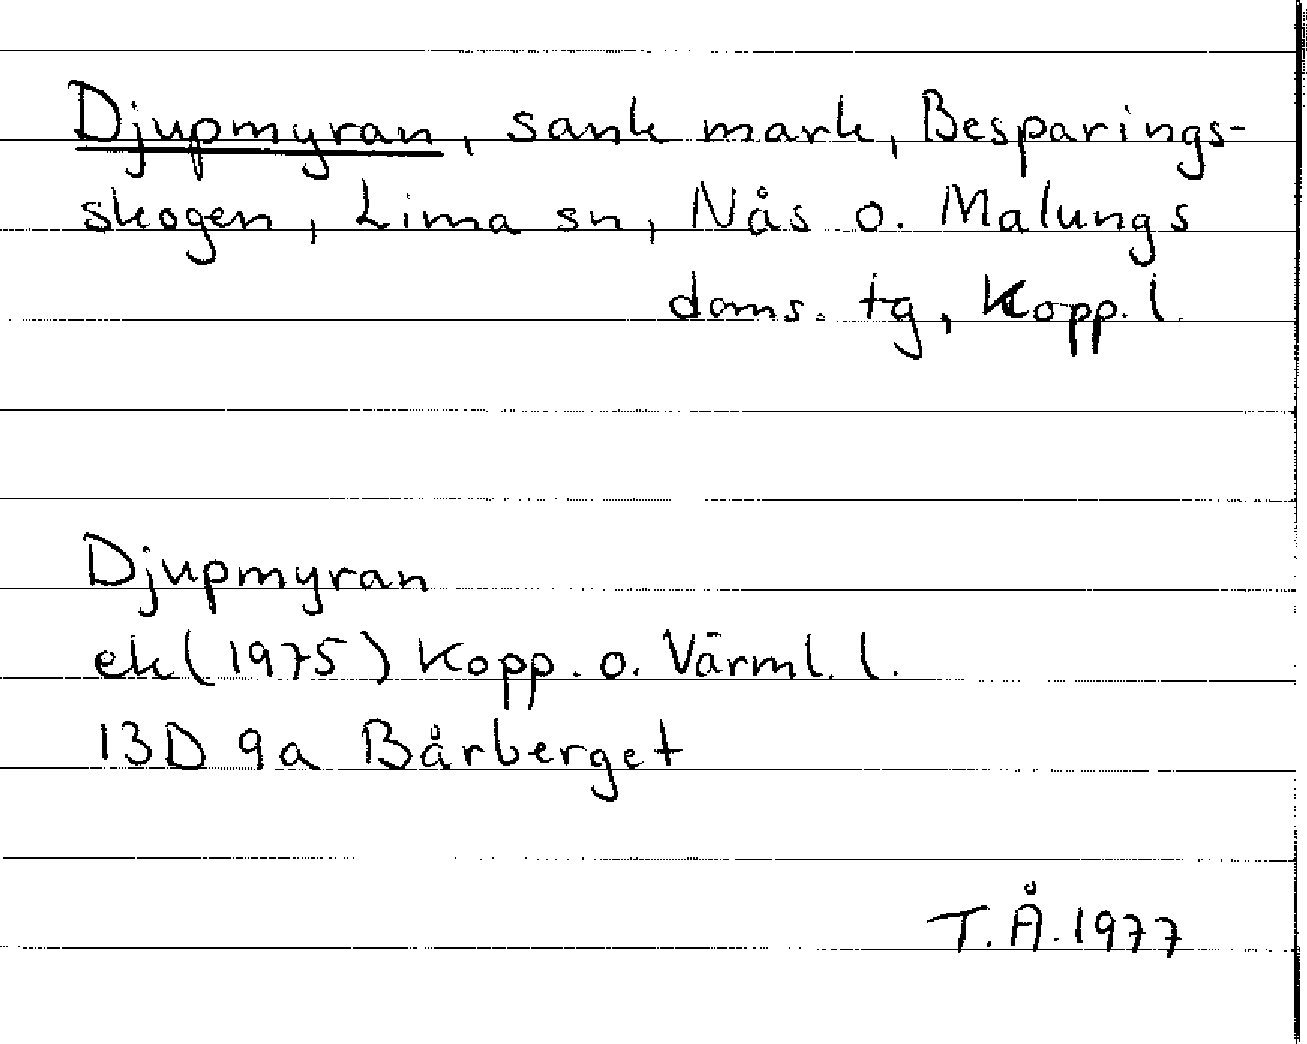 Djupmyran, sank mark, Besparings-
skogen, Lima sn, Nås o. Malungs
doms. tg, Kopp. l.
Djupmyran
ek (1975) Kopp. o. Värml. l.
13D 9a Bårberget
T.Å. 1977